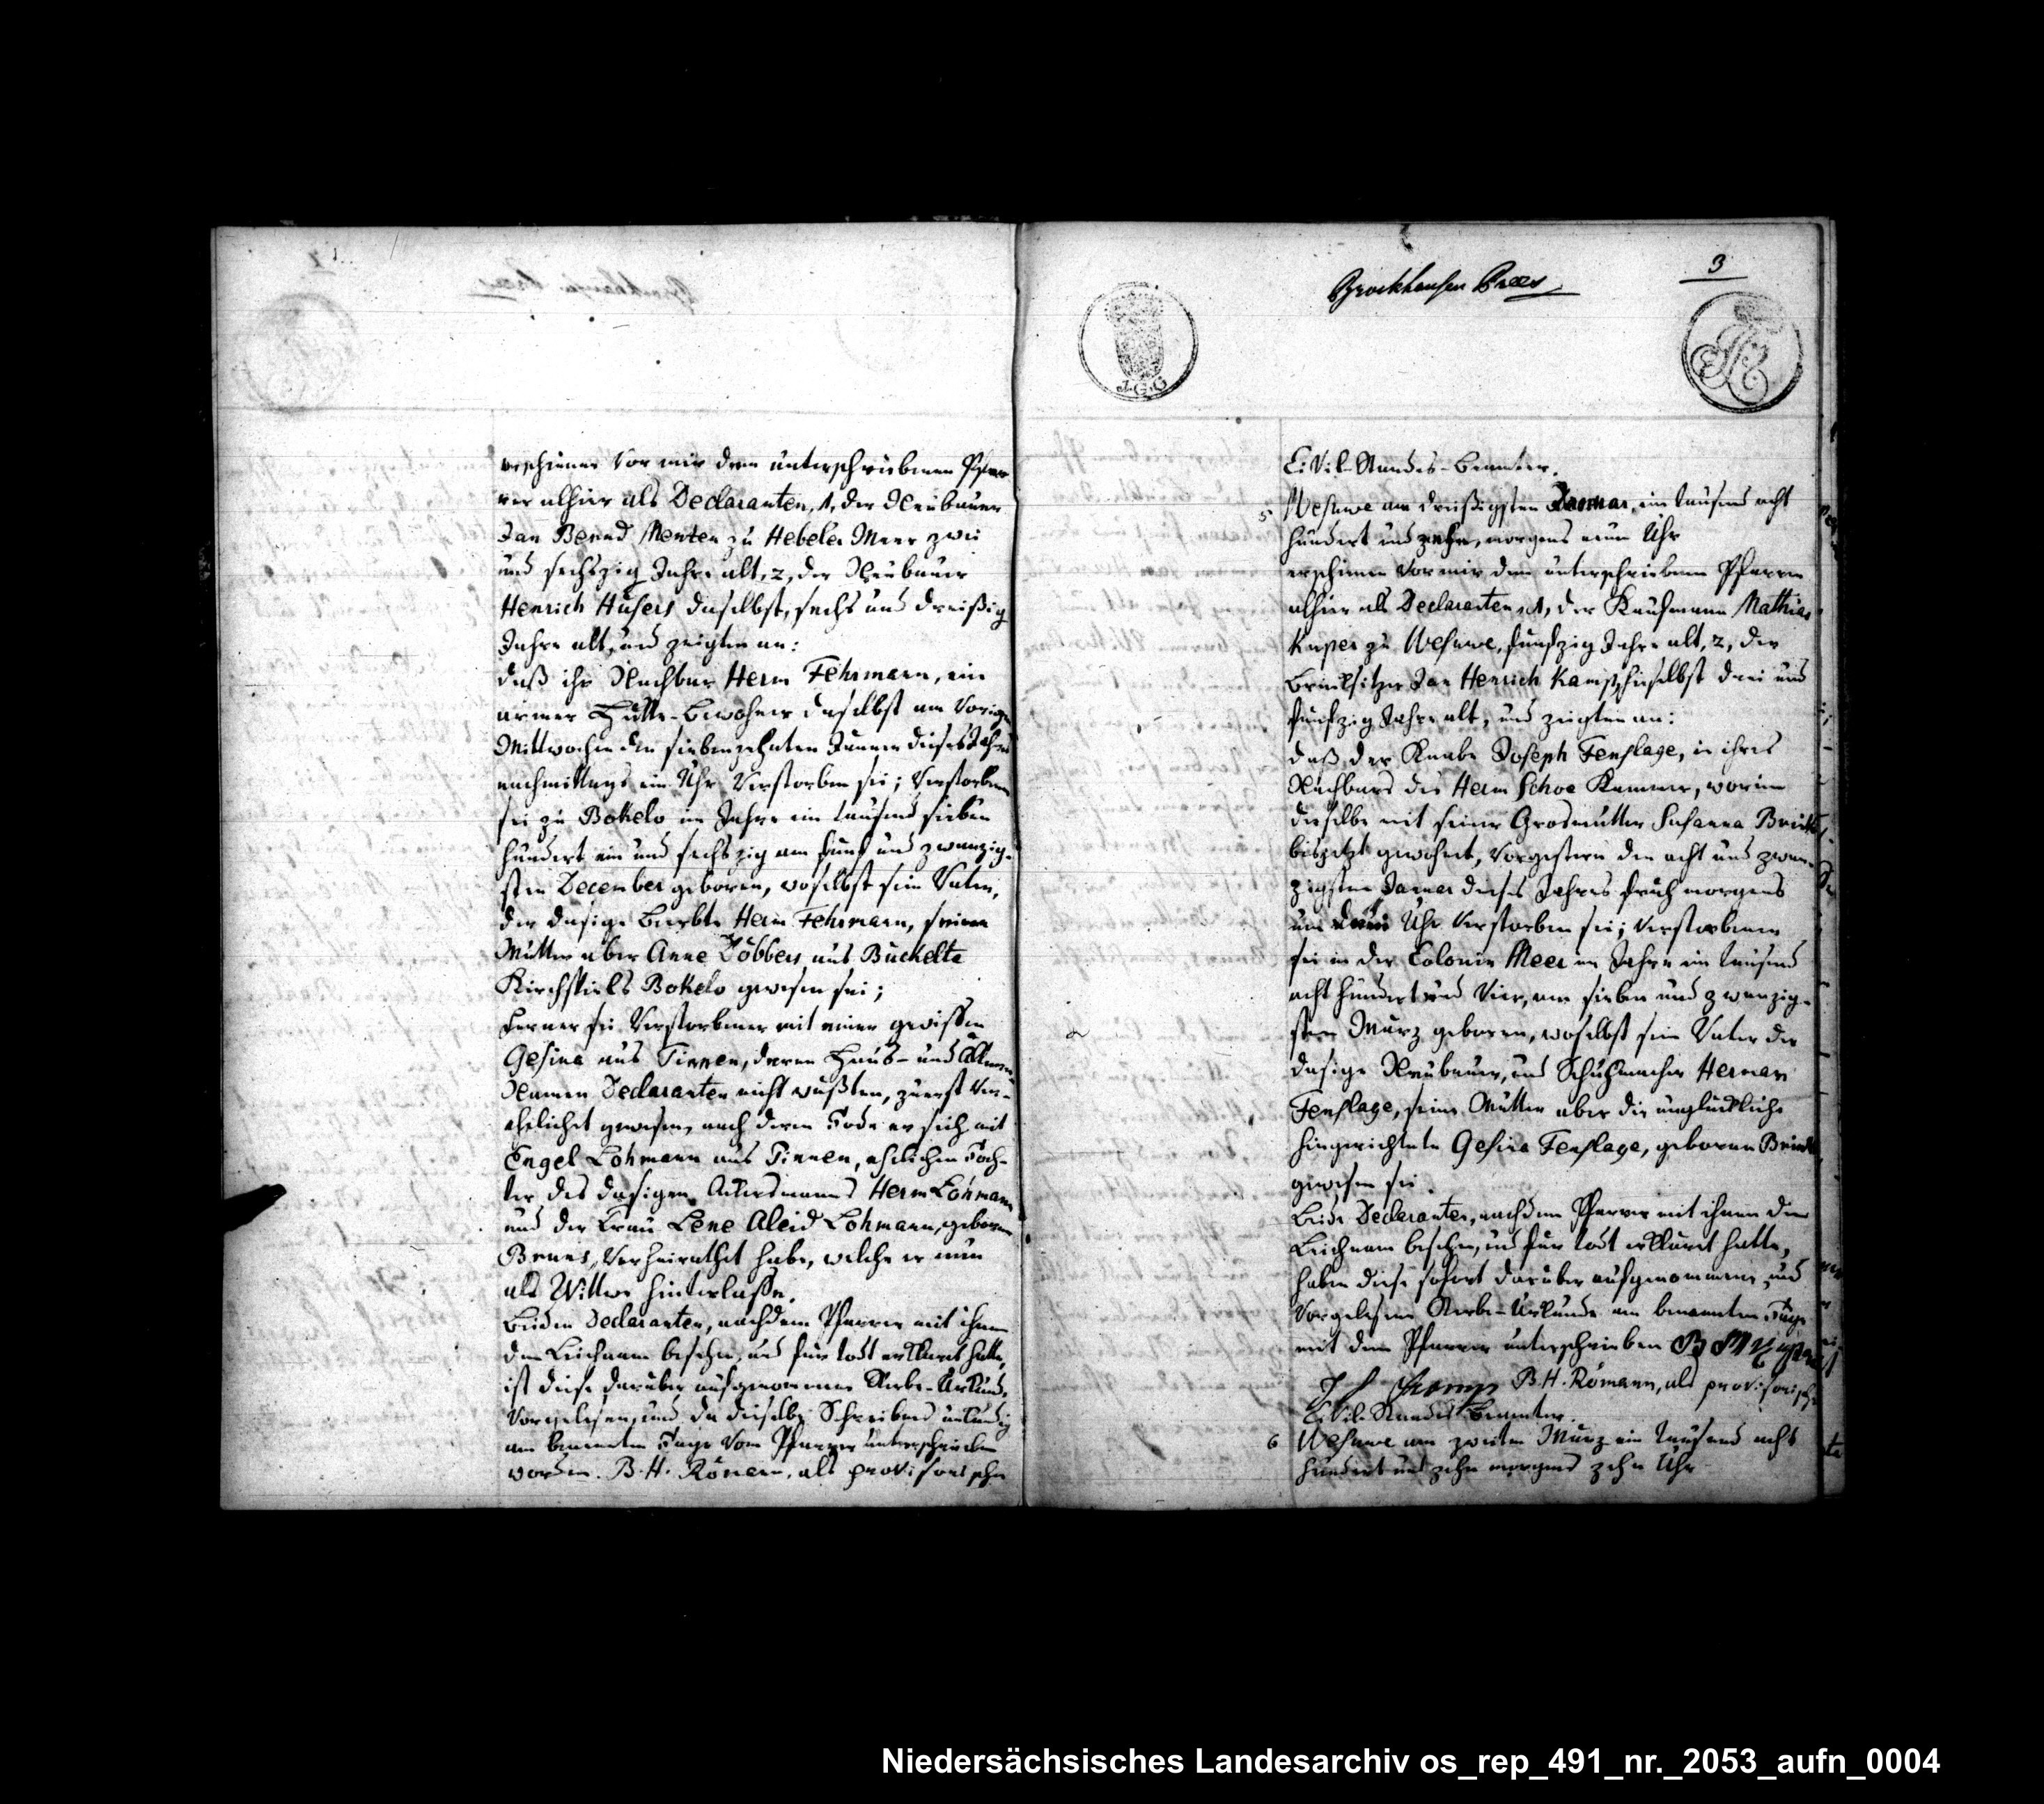 erschienen vor mir dem unterschriebenen Pfar
rer alhier als Declaranten, 1, der Neubauer
Jan Berend Menten zu Hebeler Meer zwei
und sechszig Jahre alt, 2, der Neubauer
Henrich Hüsers daselbst, sechs und dreißig
Jahre alt, und zeigten an:
daß ihr Nachbar Herm Fehrmann, ein
armer Hütte-Bewohner daselbst am vorigen
Mittwochen den siebenzehnten Januar dieses Jahres
nachmittags ein Uhr verstorben sei; Verstorbener
sei zu Bokelo im Jahre ein tausend sieben
hundert ein und sechszig am fünf und zwanzig-
sten December geboren, woselbst sein Vater,
der dasige Herm Fehrmann, seine
Mutter aber Anne Döbbers aus Buckelte
Kirchspiels Bokelo gewesen sei;
Ferner sei Verstorbener mit einer gewissen
Gesina aus Tinnen, deren Haus- und
Namen Declaranten nicht wußten, zuerst ver-
ehelicht gewesen, nach deren Tode er sich mit
Engel Lohmann aus Tinnen, ehelichen Toch-
ter des dasigen Ackersmanns Herm Lohmann
und der Frau Lene Aleid Lohmann, geboren
verheirathet habe, welche er nun
als Wittwe hinterlasse.
Beiden Declaranten, nachdem Pfarrer mit ihnen
den Leichnam besehen, und für todt erklärt hatte,
ist diese darüber aufgenommene Sterbe-Urkunde
vorgelesen, und da dieselbe Schreibens unkundig
am benannten Tage vom Pfarrer unterschrieben
worden. B. H. Römann, als provisorischer
Brockhausen
3
J. G. G
Civil-Standes-Beamter.
5 Wesuwe am dreißigsten Januar, ein tausend acht
hundert und zehn, morgens neun Uhr
erschienen vor mir dem unterschriebenen Pfarrer
alhier als Declaranten, 1, der Kaufmann Mathias
Kuper zu Wesuwe, funfzig Jahre alt, 2, der
Brinksitzer Jan Henrich Kamp hieselbst drei und
funfzig Jahre alt, und zeigten an:
daß der Knabe Joseph Fenslage, in ihres
Nachbars des Herm Schoe Kammer, worin
dieselbe mit seiner Grosmutter Susanna Brink
bis jetzt gewohnt, vorgestern den acht und zwan-
zigsten Januar dieses Jahres früh morgens
um Uhr verstorben sei; Verstorbener
sei in der Colonie Meer im Jahre ein tausend
acht hundert und vier, am sieben und zwanzig-
sten März geboren, woselbst sein Vater der
dasige Neubauer, und Schuhmacher Herman
Fenslage, seine Mutter aber die unglückliche
hingerichtete Gesina Fenslage, geboren Brink
gewesen sei.
Beide Declaranten, nachdem Pfarrer mit ihnen den
Leichnam besehen, und für todt erklärt hatte,
haben diese sofort darüber aufgenommene, und
vorgelesene Sterbe-Urkunde am benannten Tage
mit dem Pfarrer unterschrieben B M Kuper
J H Kamp B. H. Römann, als provisorischer
Civil-Standes Beamter.
6 Wesuwe am zweiten März ein tausend acht
hundert und zehn morgens zehn Uhr
Niedersächsisches Landesarchiv os_rep_491_nr._2053_aufn_0004